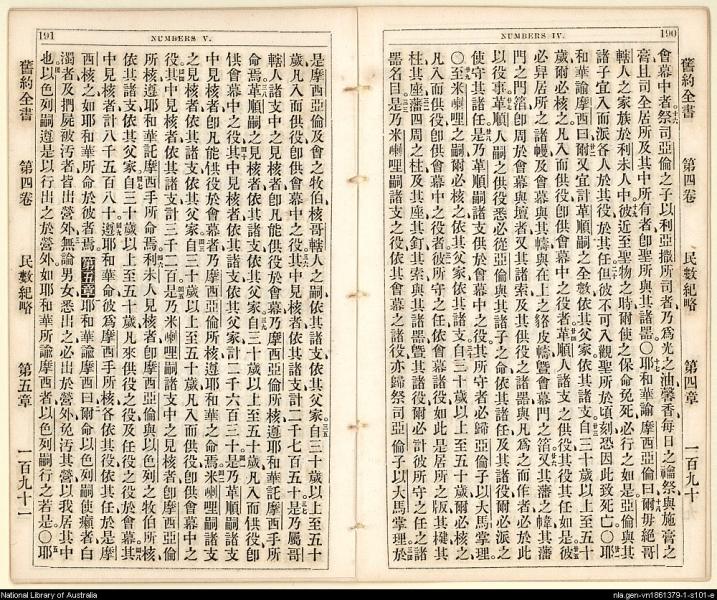 190
NUMBERS IV.
舊約全書 第四卷 民數紀略 第四章 一百九十
會幕中者祭司亞倫之子以利亞撒所司者乃為光之油馨香每日之禴祭與施膏之
膏且司全居所及其中所有者卽聖所與其諸器○耶和華諭摩西亞倫曰爾毋絕哥
轄人之家族於利未人中彼近至聖物之時爾使之保命免死必行之如是亞倫與其
諸子宜入而派各人於其役於其任但彼不可入觀聖所於頃刻恐因此致死亡○耶
和華諭摩西曰爾又宜計革順嗣之全數依其父家依其諸支自三十歲以上至五十
歲爾必核之凡入而供役卽供會幕中之役者革順人諸支之役供其役其任如是彼
必舁居所之諸幔及會幕與其幬與在上之貉皮幬暨會幕門之箔又其藩之幃其藩
門之門箔卽周於會幕與壇者又其諸索及其供役之諸器與凡為之而作者必於此
以役事革順人嗣之供役悉必從亞倫與其諸子之命依其諸任及其諸役爾必派之
使守其諸任是乃革順嗣諸支供於會幕中之役其所守者必歸亞倫子以大馬掌理
○至米喇哩之嗣爾必核之依其父家依其諸支自三十歲以上至五十歲爾必核之
凡入而供役卽供會幕中之役者彼所守之任依會幕諸役如此是居所之版其楗其
柱其座藩四周之柱及其座其釘其索與其諸器暨其諸役爾必計彼所守之任之諸
器名目是乃米喇哩嗣諸支之役依其會幕之諸役亦歸祭司亞倫子以大馬掌理於
191
NUMBERS V.
是摩西亞倫及會之牧伯核哥轄人之嗣依其諸支依其父家自三十歲以上至五十
歲凡入而供役卽供會幕中之役其中見核者依其諸支計二千七百五十是乃屬哥
轄人諸支中之見核者卽凡能供役於會幕乃摩西亞倫所核遵耶和華託摩西手所
命焉革順嗣之見核者依其諸支依其父家自三十歲以上至五十歲凡入而供役卽
供會幕中之役其中見核者依其諸支依其父家計二千六百三十是乃革順嗣諸支
之見核者卽凡能供役於會幕者乃摩西亞倫所核遵耶和華之命焉米喇哩嗣諸支
之見核者依其諸支依其父家自三十歲以上至五十歲凡入而供役卽供會幕中之
役其中見核者依其諸支計三千二百是乃米喇哩嗣諸支中之見核者卽摩西亞倫
所核遵耶和華託摩西手所命焉利未人見核者卽摩西亞倫與以色列之牧伯所核
依其諸支依其父家自三十歲以上至五十歲凡來供役之役及任役之役於會幕其
中見核者計八千五百八十遵耶和華命彼為摩西手所核各依其役依其任於是摩
西核之如耶和華所命於彼者焉第五章耶和華諭摩西曰爾命以色列嗣使癩者白
濁者及捫屍被污者皆出營外無論男女悉出之必出於營外免污其營以我居其中
也以色列嗣遵是以行出之於營外如耶和華所諭摩西者以色列嗣行之若是○耶
舊約全書 第四卷 民數紀略 第五章 一百九十一
National Library of Australia
nla.gen-vn1861379-1-s101-e